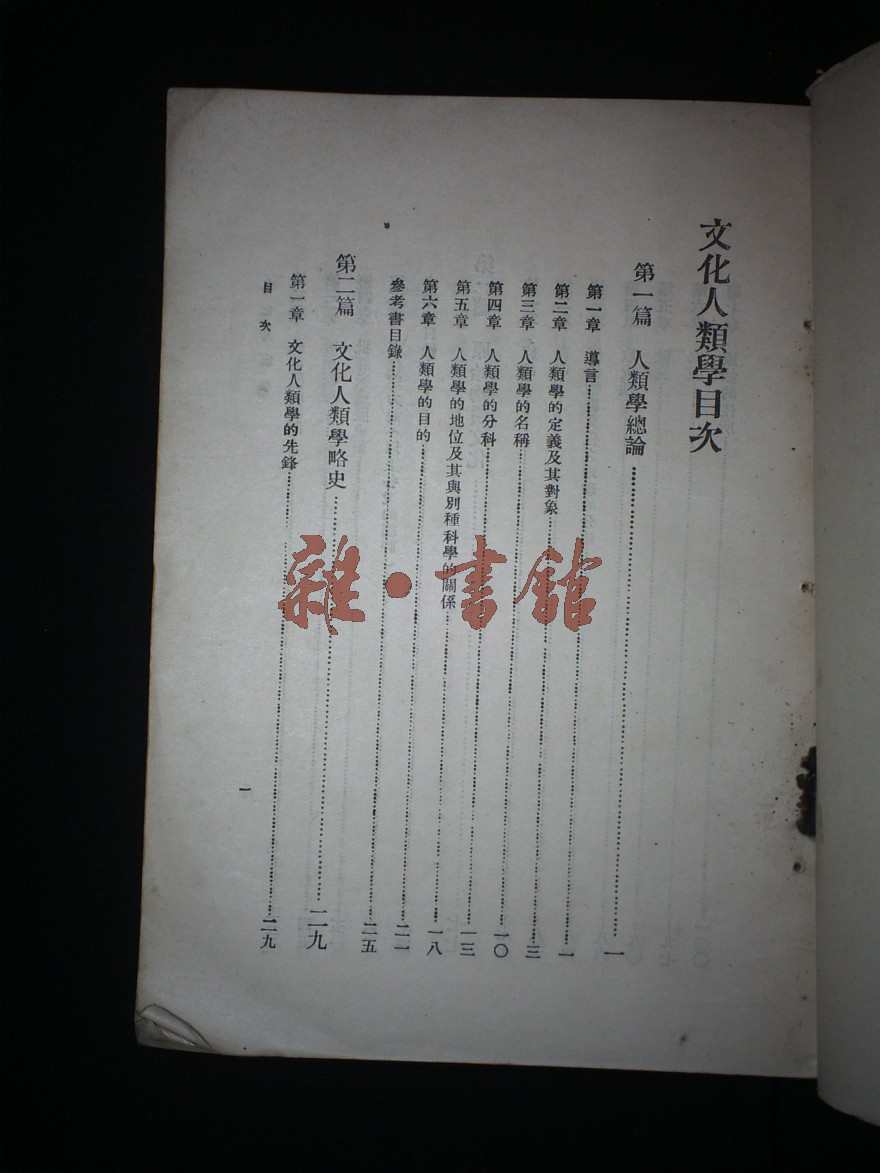 文化人類學目次
第一篇 人類學總論……一
第一章 導言……一
第二章 人類學的定義及其對象……三
第三章 人類學的名稱……一〇
第四章 人類學的分科……一三
第五章 人類學的地位及其與別種科學的關係……一八
第六章 人類學的目的……二一
參考書目錄……二五
第二篇 文化人類學略史……二九
第一章 文化人類學的先鋒……二九
目次
一
雜·書館